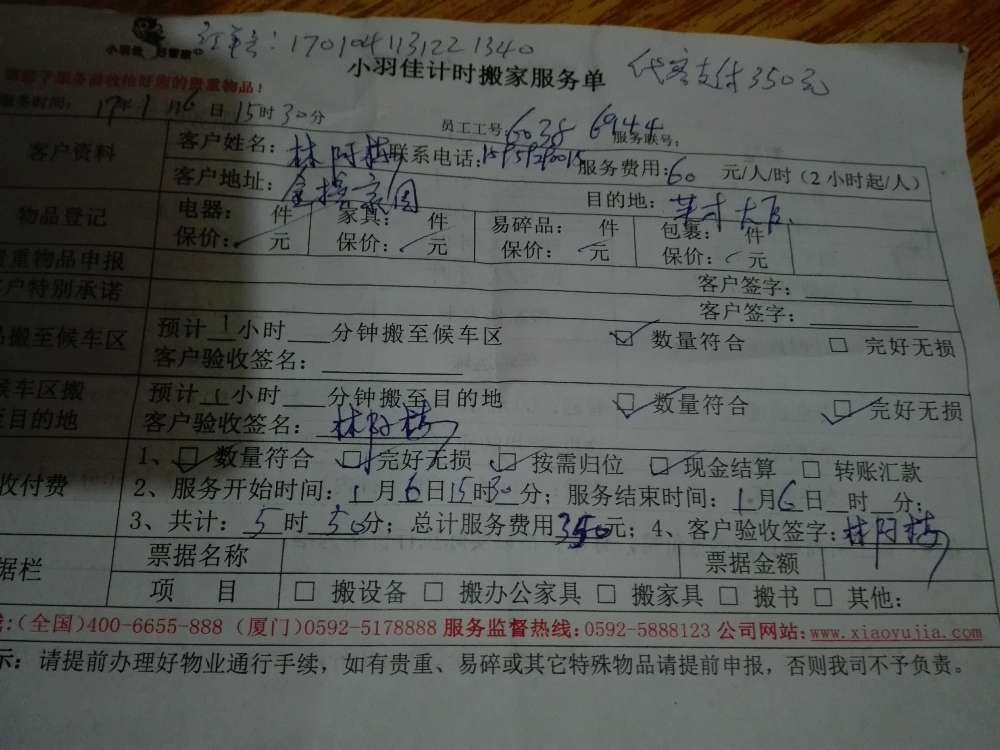 订单号：1701041131221340
小羽佳计时搬家服务单
代客支付350元
服务时间：17年1月6日15时30分
员工工号：6038 6944
服务联号：
客户资料
客户姓名：林阿梅 联系电话： 服务费用：60 元/人/时（2小时起/人）
客户地址： 目的地：英才大厦
物品登记
电器： 件 家具： 件 易碎品： 件 包裹： 件
保价： 元 保价： 元 保价： 元 保价： 元
贵重物品申报 客户签字：
客户特别承诺 客户签字：
搬至候车区 预计1小时 分钟搬至候车区 ☑ 数量符合 □ 完好无损
客户验收签名：
候车区搬至目的地 预计1小时 分钟搬至目的地 ☑ 数量符合 ☑ 完好无损
客户验收签名：林阿梅
收付费 1、☑ 数量符合 ☑ 完好无损 ☑ 按需归位 ☑ 现金结算 □ 转账汇款
2、服务开始时间：1月6日15时30分；服务结束时间：1月6日 时 分；
3、共计：5时50分；总计服务费用350元；4、客户验收签字：林阿梅
据栏 票据名称 票据金额
项 目 □ 搬设备 □ 搬办公家具 □ 搬家具 □ 搬书 □ 其他：
(全国)400-6655-888 (厦门)0592-5178888 服务监督热线:0592-5888123 公司网站:www.xiaoyujia.com
示：请提前办理好物业通行手续，如有贵重、易碎或其它特殊物品请提前申报，否则我司不予负责。